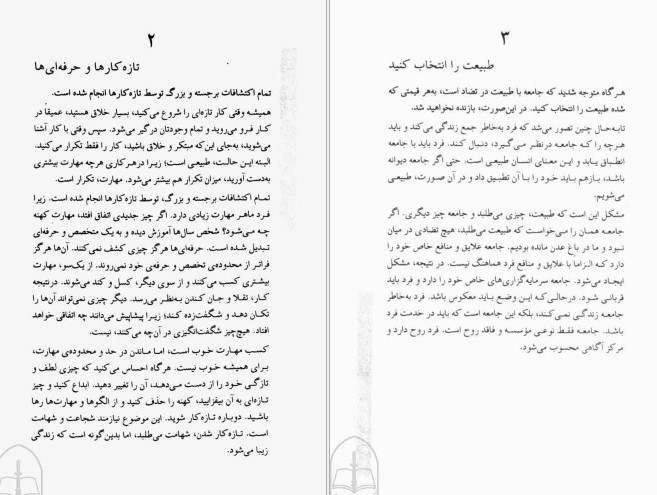 ۲
تازه‌کارها و حرفه‌ای‌ها
تمام اکتشافات برجسته و بزرگ توسط تازه‌کارها انجام شده است.
همیشه وقتی کار تازه‌ای را شروع می‌کنید، بسیار خلاق هستید، عمیقاً در
کار فرو می‌روید و تمام وجودتان درگیر می‌شود. سپس وقتی با کار آشنا
می‌شوید، به‌جای این‌که مبتکر و خلاق باشید، کار را فقط تکرار می‌کنید.
البته این حالت، طبیعی است؛ زیرا در هر کاری هرچه مهارت بیشتری
به‌دست آورید، میزان تکرار هم بیشتر می‌شود. مهارت، تکرار است.
تمام اکتشافات بزرگ، توسط تازه‌کارها انجام شده است. زیرا
فرد ماهر مهارت زیادی دارد. اگر چیز جدیدی اتفاق افتد، مهارت کهنه
چه می‌شود؟ شخص سال‌ها آموزش دیده و به یک متخصص و حرفه‌ای
تبدیل شده است. حرفه‌ای‌ها هرگز چیزی کشف نمی‌کنند. آن‌ها هرگز
فراتر از محدوده‌ی تخصص و حرفه‌ی خود نمی‌روند. از یک‌سو، مهارت
بیشتری کسب می‌کنند و از سوی دیگر، کسل و کند می‌شوند. درنتیجه
کار، تقلا و جان کندن به‌نظر می‌رسد. دیگر چیزی نمی‌تواند آن‌ها را
تکان دهد و شگفت‌زده کند؛ زیرا پیشاپیش می‌دانند چه اتفاقی خواهد
افتاد. هیچ‌چیز شگفت‌انگیزی در آن‌چه می‌کنند، نیست.
کسب مهارت خوب است، اما ماندن در حد و محدوده‌ی مهارت،
برای همیشه خوب نیست. هرگاه احساس می‌کنید که چیزی لطف و
تازگی خود را از دست می‌دهد، آن را تغییر دهید. ابداع کنید و چیز
تازه‌ای به آن بیفزایید، کهنه را حذف کنید و از الگوها و مهارت‌ها رها
باشید. دوباره تازه‌کار شوید. این موضوع نیازمند شجاعت و شهامت
است. تازه‌کار شدن، شهامت می‌طلبد، اما بدین‌گونه است که زندگی
زیبا می‌شود.
۳
طبیعت را انتخاب کنید
هرگاه متوجه شدید که جامعه با طبیعت در تضاد است، به‌هر قیمتی که
شده طبیعت را انتخاب کنید. در این‌صورت، بازنده نخواهید شد.
تابه‌حال چنین تصور می‌شد که فرد به‌خاطر جمع زندگی می‌کند و باید
هرچه را که جامعه درنظر می‌گیرد، دنبال کند. فرد باید با جامعه
انطباق یابد و این معنای انسان طبیعی است. حتی اگر جامعه دیوانه
باشد، بازهم باید خود را با آن تطبیق داد و در آن صورت، طبیعی
می‌شویم.
مشکل این است که طبیعت، چیزی می‌طلبد و جامعه چیز دیگری. اگر
جامعه همان را می‌خواست که طبیعت می‌طلبد، هیچ تضادی در میان
نبود و ما در باغ عدن مانده بودیم. جامعه علایق و منافع خاص خود را
دارد که الزاما با علایق و منافع فرد هماهنگ نیست. در نتیجه، مشکل
ایجاد می‌شود. جامعه سرمایه‌گزاری‌های خاص خود را دارد و فرد باید
قربانی شود. درحالی‌که این وضع باید معکوس باشد. فرد به‌خاطر
جامعه زندگی نمی‌کند، بلکه این جامعه است که باید در خدمت فرد
باشد. جامعه فقط نوعی مؤسسه و فاقد روح است. فرد روح دارد و
مرکز آگاهی محسوب می‌شود.